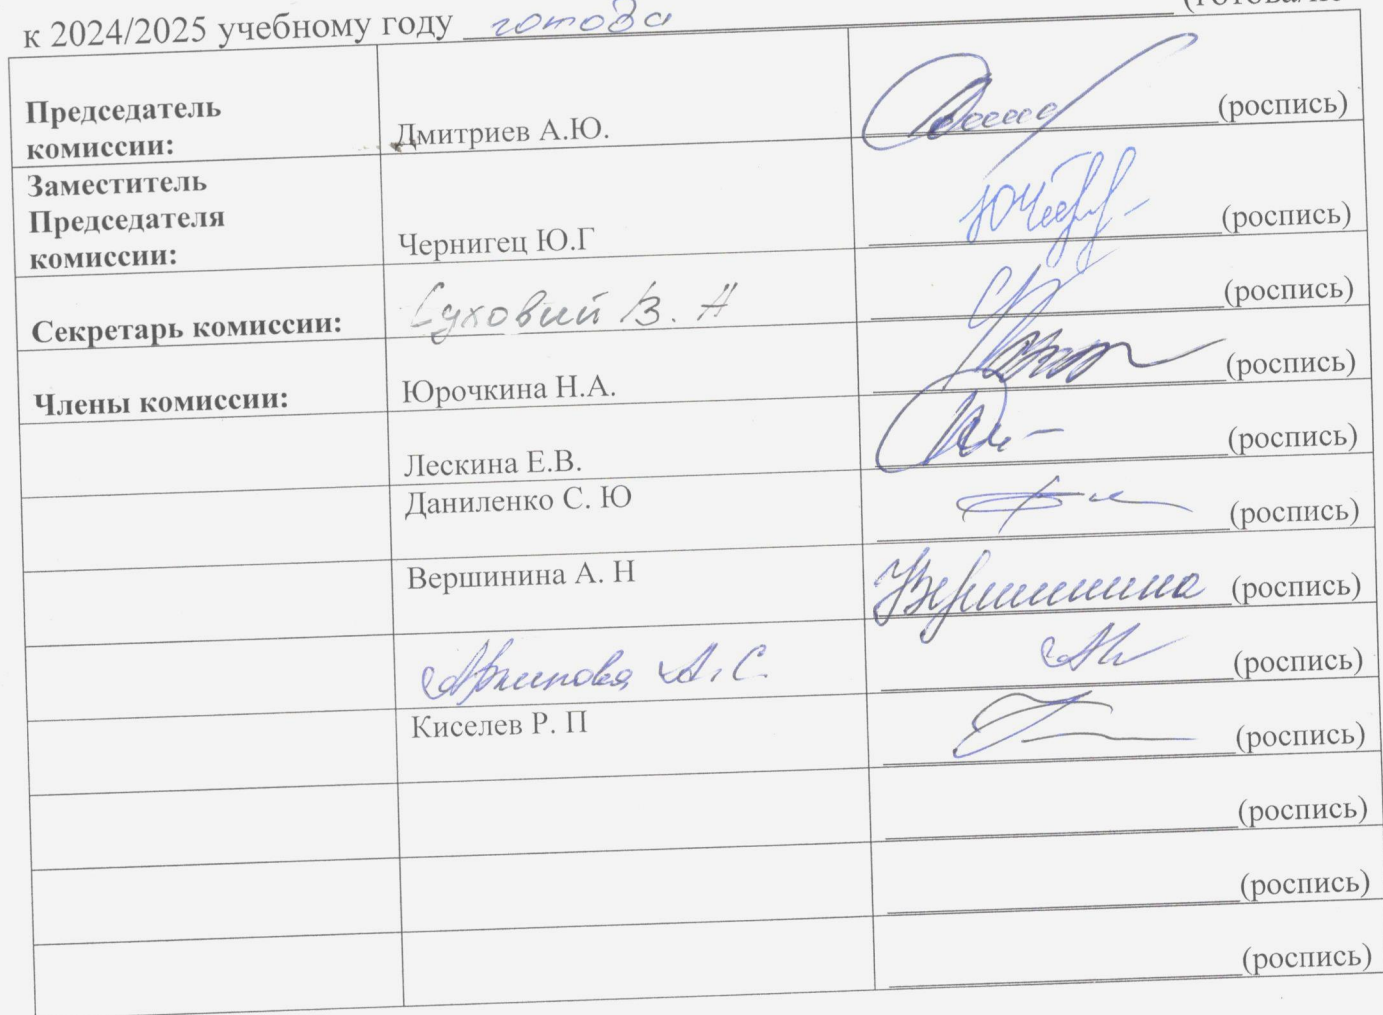 к 2024/2025 учебному году готова
Председатель
комиссии:
Дмитриев А.Ю.
(роспись)
Заместитель
Председателя
комиссии:
Чернигец Ю.Г
(роспись)
Секретарь комиссии:
Суховий В. А
(роспись)
Члены комиссии:
Юрочкина Н.А.
(роспись)
Лескина Е.В.
(роспись)
Даниленко С. Ю
(роспись)
Вершинина А. Н
Вершинина
(роспись)
Архипова А.С.
(роспись)
Киселев Р. П
(роспись)
(роспись)
(роспись)
(роспись)